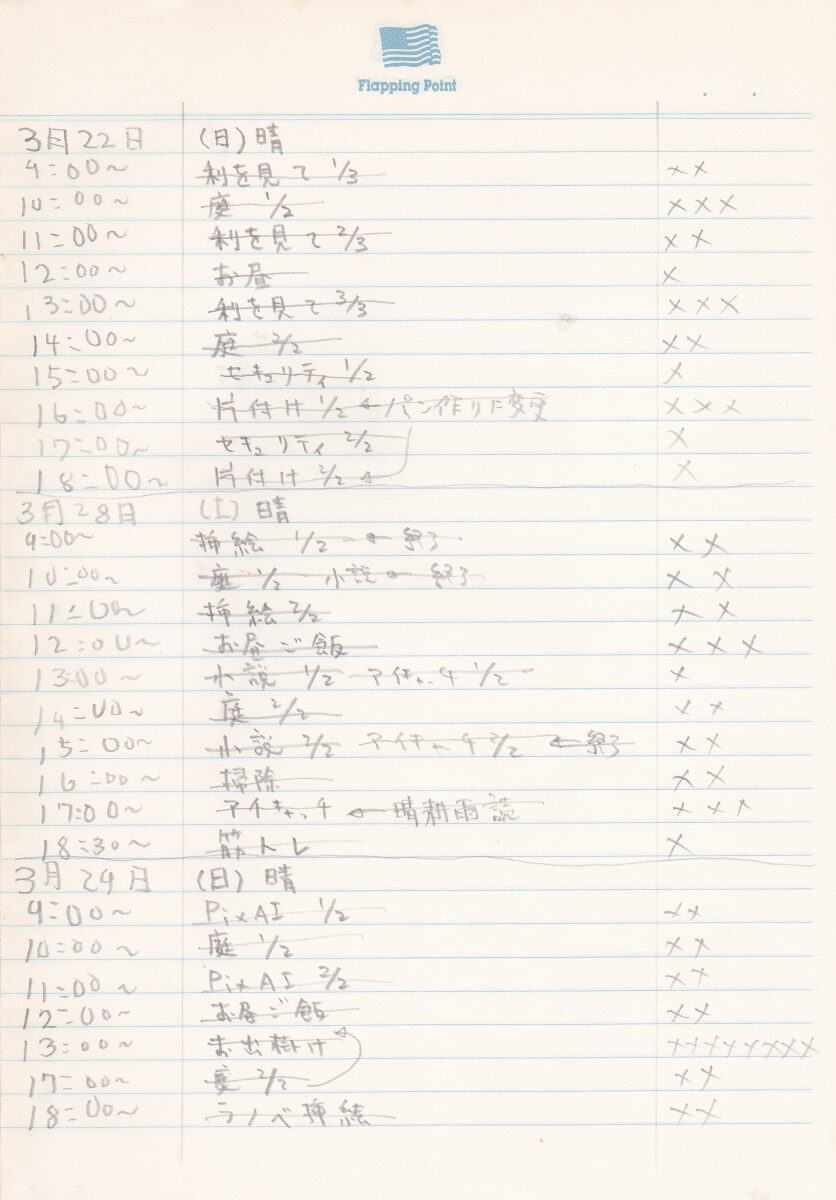 Flapping Point
3月22日 (日) 晴
9:00~ 利を見て 1/3 ××
10:00~ 庭 1/2 ×××
11:00~ 利を見て 2/3 ××
12:00~ お昼 ×
13:00~ 利を見て 3/3 ×××
14:00~ 庭 2/2 ××
15:00~ セキュリティ 1/2 ×
16:00~ 片付け 1/2 ← パン作りに変更 ×××
17:00~ セキュリティ 2/2 ×
18:00~ 片付け 2/2 ×
3月28日 (土) 晴
9:00~ 挿絵 1/2 ← 終了 ××
10:00~ 庭 1/2 小説 ← 終了 ××
11:00~ 挿絵 2/2 ××
12:00~ お昼ご飯 ×××
13:00~ 小説 1/2 アイキャッチ 1/2 ×
14:00~ 庭 2/2 ××
15:00~ 小説 2/2 アイキャッチ 2/2 ← 終了 ××
16:00~ 掃除 ××
17:00~ アイキャッチ ← 晴耕雨読 ×××
18:30~ 筋トレ ×
3月29日 (日) 晴
9:00~ PixAI 1/2 ××
10:00~ 庭 1/2 ××
11:00~ PixAI 2/2 ××
12:00~ お昼ご飯 ××
13:00~ お出掛け ××××××××
17:00~ 庭 2/2 ××
18:00~ ラノベ挿絵 ××